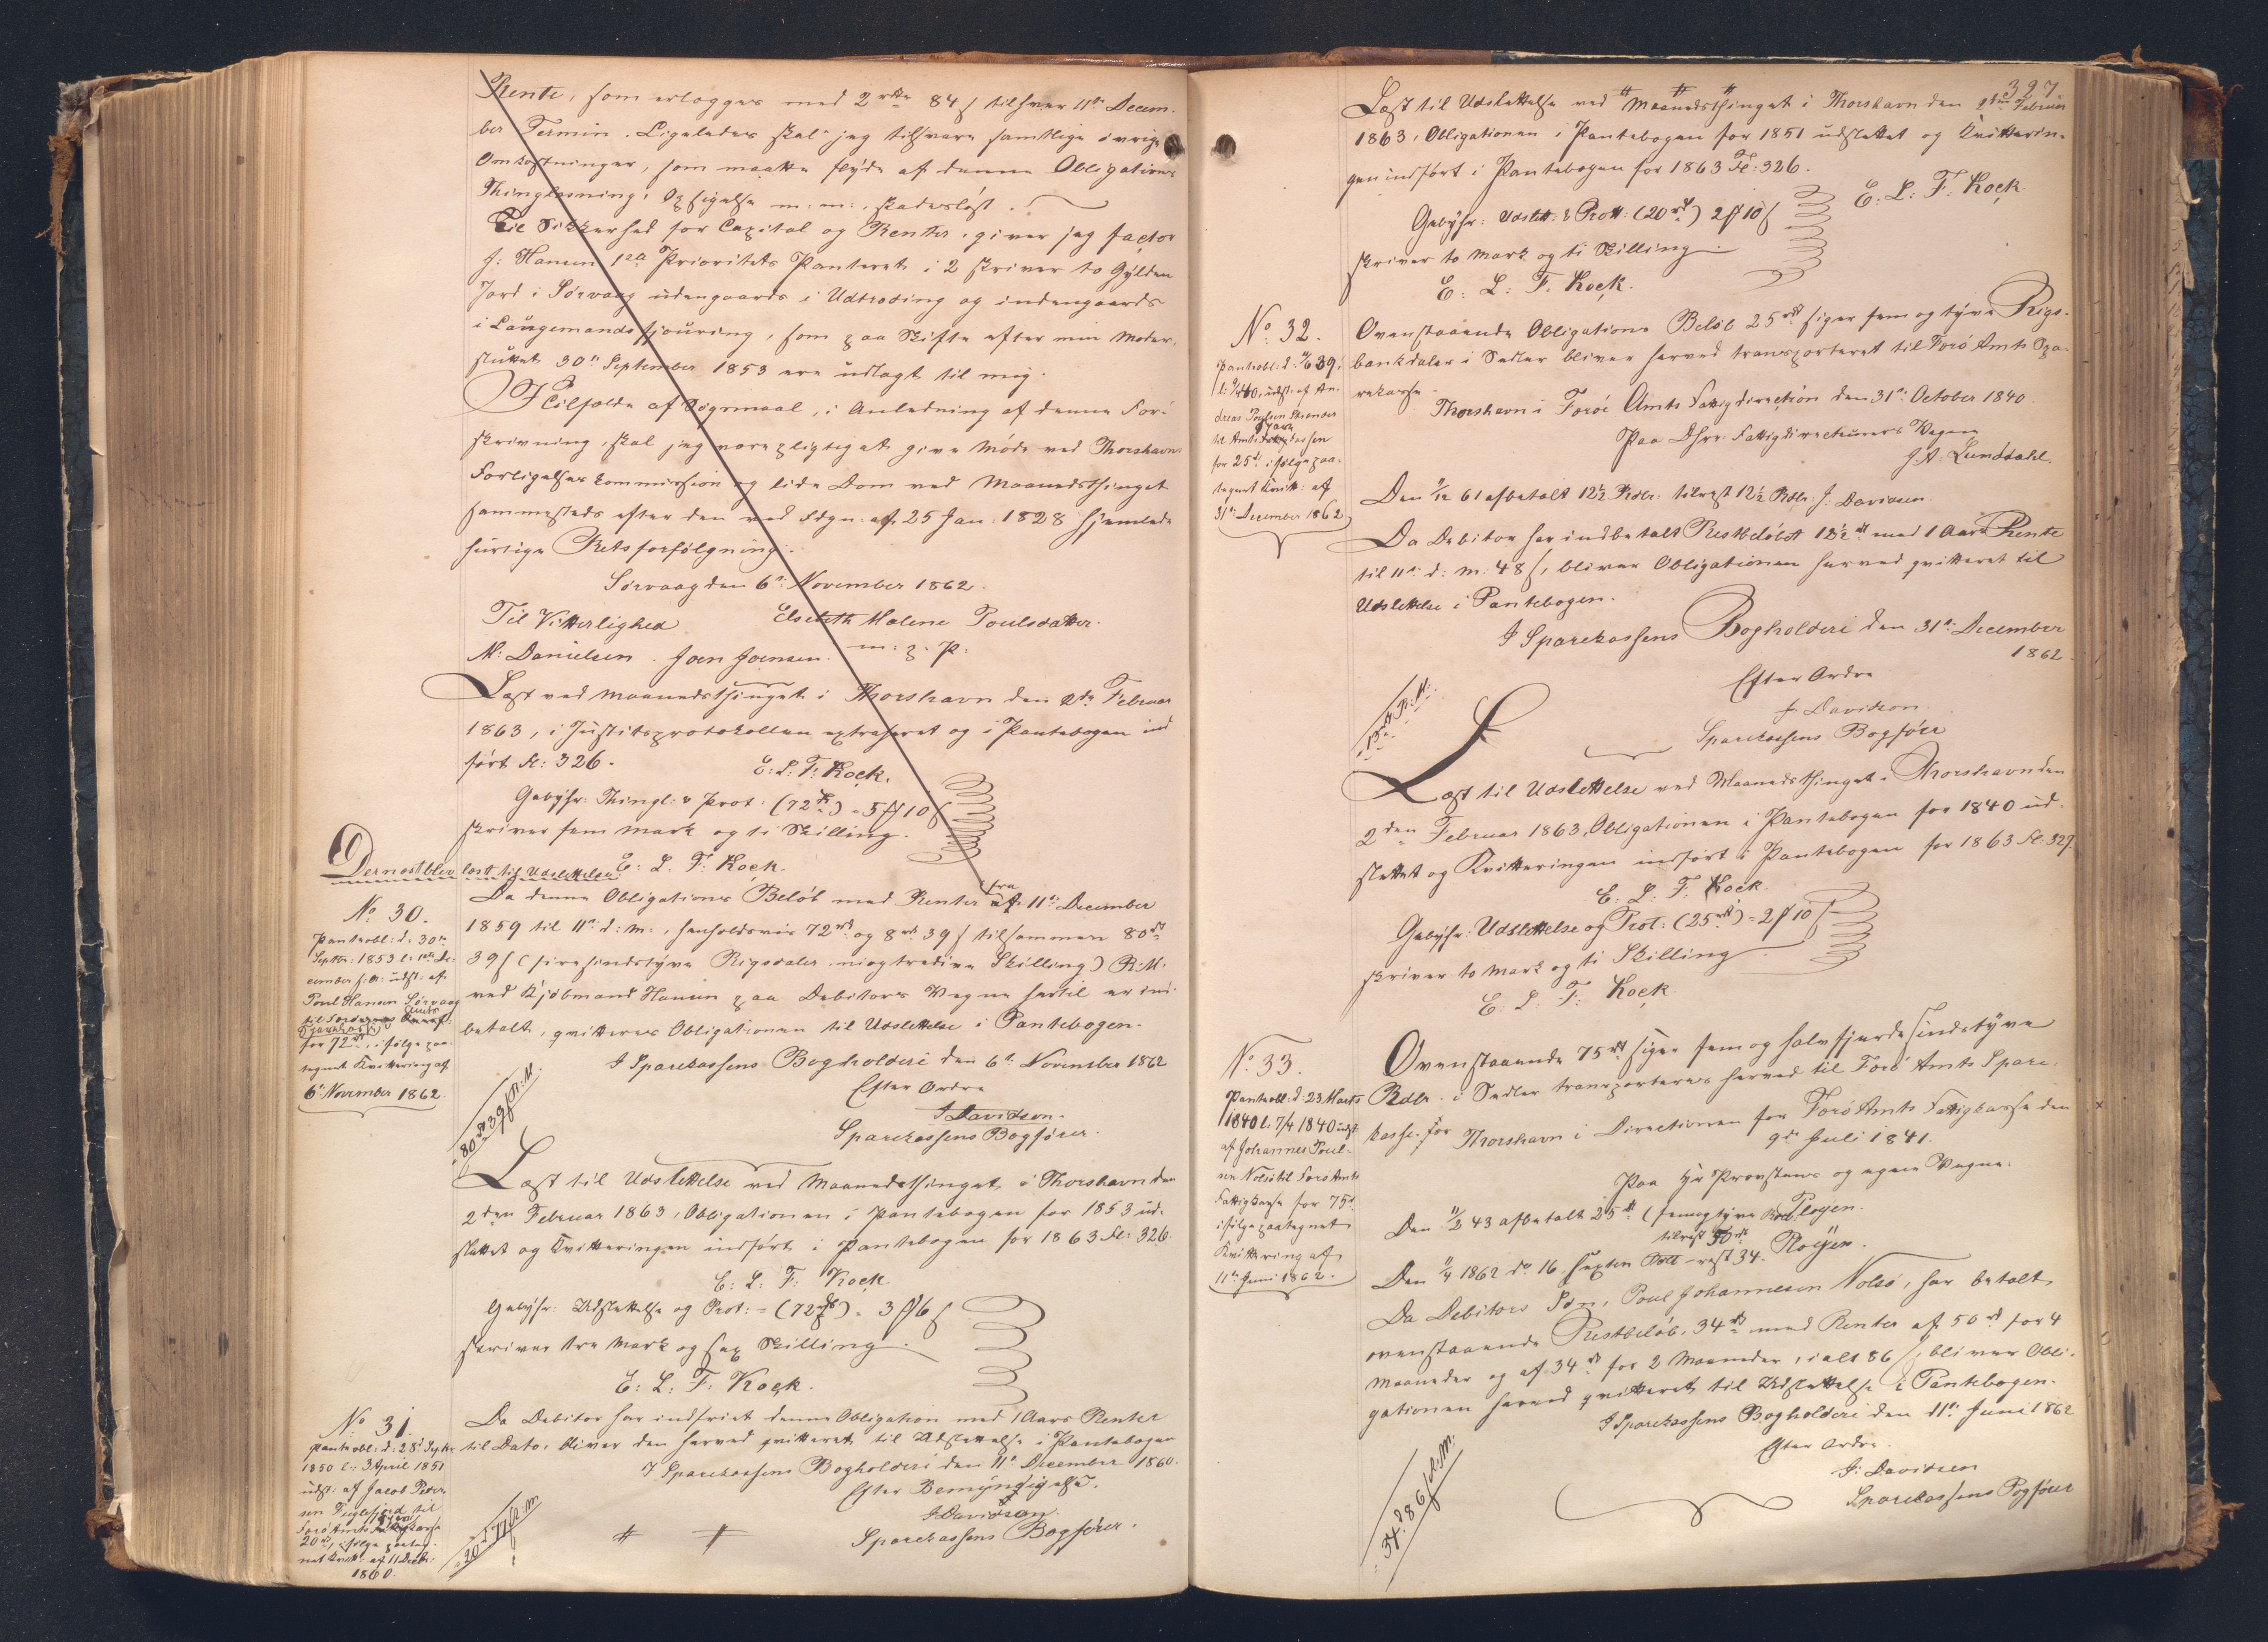 Rente, som erlægges med 2 rdlr 84 ß til hver 11te Decem-
ber Termin. Ligeledes skal jeg tilsvare samtlige øvrige
Omkostninger, som maatte flyde af denne Obligations
Thinglæsning, Opsigelse m: m:, skadesløst.
Til Sikkerhed for Capital og Renter, giver jeg Factor
J: Hansen 1ste Prioritets Panteret i 2 skriver to Gylden
Jord i Sørvaag udengaards i Udtroding og indengaards
i Laugemandsfjouring, som paa Skifte efter min Moder,
sluttet 30te September 1853 ere udlagt til mig.
I Tilfælde af Søgsmaal, i Anledning af denne For-
skrivning, skal jeg være pligtig at give Møde ved Thorshavns
Forligelses Commission og lide Dom ved Maanedsthinget
sammesteds efter den ved Fdgn: af 25 Jan: 1828 hjemlede
hurtige Retsforfølgning.
Sørvaag den 6te November 1862.
Til Vitterlighed Elsebeth Malene Poulsdatter.
M: Danielsen. Joen Joensen. m: p. P:
Læst ved Maanedsthinget i Thorshavn den 2den Februar
1863, i Justitsprotokollen extraheret og i Pantebogen ind
ført Fol: 326.
E: L: F: Kock.
Gebyhr: Thingl: & Prot: (72 rd) - 5 # 10 ß
skriver fem Mark og ti Skilling.
E: L: F: Kock.
Dernæst blev læst til Udslettelse
No 30.
Panteobl: d: 30te
Septbr: 1853 l: 1ste De-
cember s: A: udst: af
Poul Hansen Sørvaag
til Færøernes Amts
Sparekasse
for 72 rd, ifølge paa-
tegnet Kvittering af
6te November 1862.
Da denne Obligations Beløb med Renter fra 11te December
1859 til 11te d: M:, henholdsvis 72 rd og 8 rd 39 ß tilsammen 80 rd
39 ß (firesindstyve Rigsdaler niogtredive Skilling) R: M:
ved Kjøbmand Hansen paa Debitors Vegne hertil er ind-
betalt, qvitteres Obligationen til Udslettelse i Pantebogen.
I Sparekassens Bogholderi den 6te November 1862
Efter Ordre
J Davidsen.
Sparekassens Bogfører.
80 rd 39 ß R: M.
Læst til Udslettelse ved Maanedsthinget i Thorshavn den
2den Februar 1863, Obligationen i Pantebogen for 1853 ud-
slettet og Kvitteringen indført i Pantebogen for 1863 Fol: 326.
E: L: F: Kock.
Gebyhr: Udslettelse og Prot: - (72 rd) - 3 # 6 ß
skriver tre Mark og sex Skilling.
E: L: F: Kock.
No 31.
Pantobl: d: 28d Septbr
1850 l: 3 April 1851
udst: af Jacob Peter-
sen Fuglefjord til
Færø Amts Sparekasse
20 rd, ifølge paateg-
net Kvitt: af 11 Decbr:
1860.
Da Debitor har indfriet denne Obligation med 1 Aars Renter
til Dato, bliver den herved qvitteret til Udslettelse i Pantebogen
I Sparekassens Bogholderi den 11te December 1860.
Efter Bemyndigelse.
J Davidsen.
Sparekassens Bogfører.
# #
327
# # #
Læst til Udslettelse ved Maanedsthinget i Thorshavn den 2den Februar
1863, Obligationen i Pantebogen for 1851 udslettet og Kvitterin-
gen indført i Pantebogen for 1863 Fol: 326.
E: L: F: Kock.
Gebyhr: Udslett: & Prott: (20 rd) 2 # 10 ß
skriver to Mark og ti Skilling.
E: L: F: Kock.
No 32.
til Amts Sparekassen
for 25 rd: ifølge paa-
tegnet Kvitt: af
31te December 1862
Ovenstaaende Obligations Beløb 25 rd siger fem og tyve Rigs-
bankdaler i Sedler bliver herved transporteret til Færø Amts Spa-
rekasse.
Thorshavn i Færøe Amts Fattigdirection den 31te October 1840.
Paa Dhrr: Fattigdirecteurers Vegne
J. A: Lunddahl.
Den 11/12 61 afbetalt 12½ Rdlr: tilrest 12½ Rdlr: J: Davidsen.
Da Debitor har indbetalt Restbeløbet 12½ rd med 1 Aars Rente
til 11te d: M: 48 ß, bliver Obligationen herved qvitteret til
Udslettelse i Pantebogen.
I Sparekassens Bogholderi den 31te December
1862.
Efter Ordre
J. Davidsen.
Sparekassens Bogfører
Læst til Udslettelse ved Maanedsthinget i Thorshavn den
2den Februar 1863, Obligationen i Pantebogen for 1840 ud-
slettet og Kvitteringen indført i Pantebogen for 1863 Fol. 327.
E: L: F: Kock.
Gebyhr: Udslettelse og Prot: (25 rd) - 2 # 10 ß
skriver to Mark og ti Skilling.
E: L: F: Kock.
No 33.
Pantobl: d: 23 Marts
1840 l: 7/4 1840 udst
af Johannes Poul-
sen Nolsø til Færø Amts
Fattigkasse for 75 rd
ifølge paategnet
Kvittering af
11te Juni 1862.
Ovenstaaende 75 rd siger fem og halvfjerdesindstyve
Rdlr. i Sedler transporteres herved til Færø Amts Spare-
kasse. Thorshavn i Directionen for Færø Amts Fattigkasse den
9de Juli 1841.
Paa Hr Provstens og egne Vegne.
Pløyen.
Den 11/2 43 afbetalt 25 rd (femogtyve Rbdlr
tilrest 50 rd Pløyen.
Den 9/4 1862 do 16 sexten Rdlr - rest 34.
Da Debitors Søn, Poul Johannesen Nolsø, har betalt
ovenstaaende Restbeløb, 34 rd med Renter af 50 rd for 4
Maaneder og af 34 rd for 2 Maaneder, i alt 86 ß, bliver Obli-
gationen herved qvitteret til Udslettelse i Pantebogen.
I Sparekassens Bogholderi den 11te Juni 1862
Efter Ordre.
J: Davidsen
Sparekassens Bogfører
34 rd 86 ß R: M.